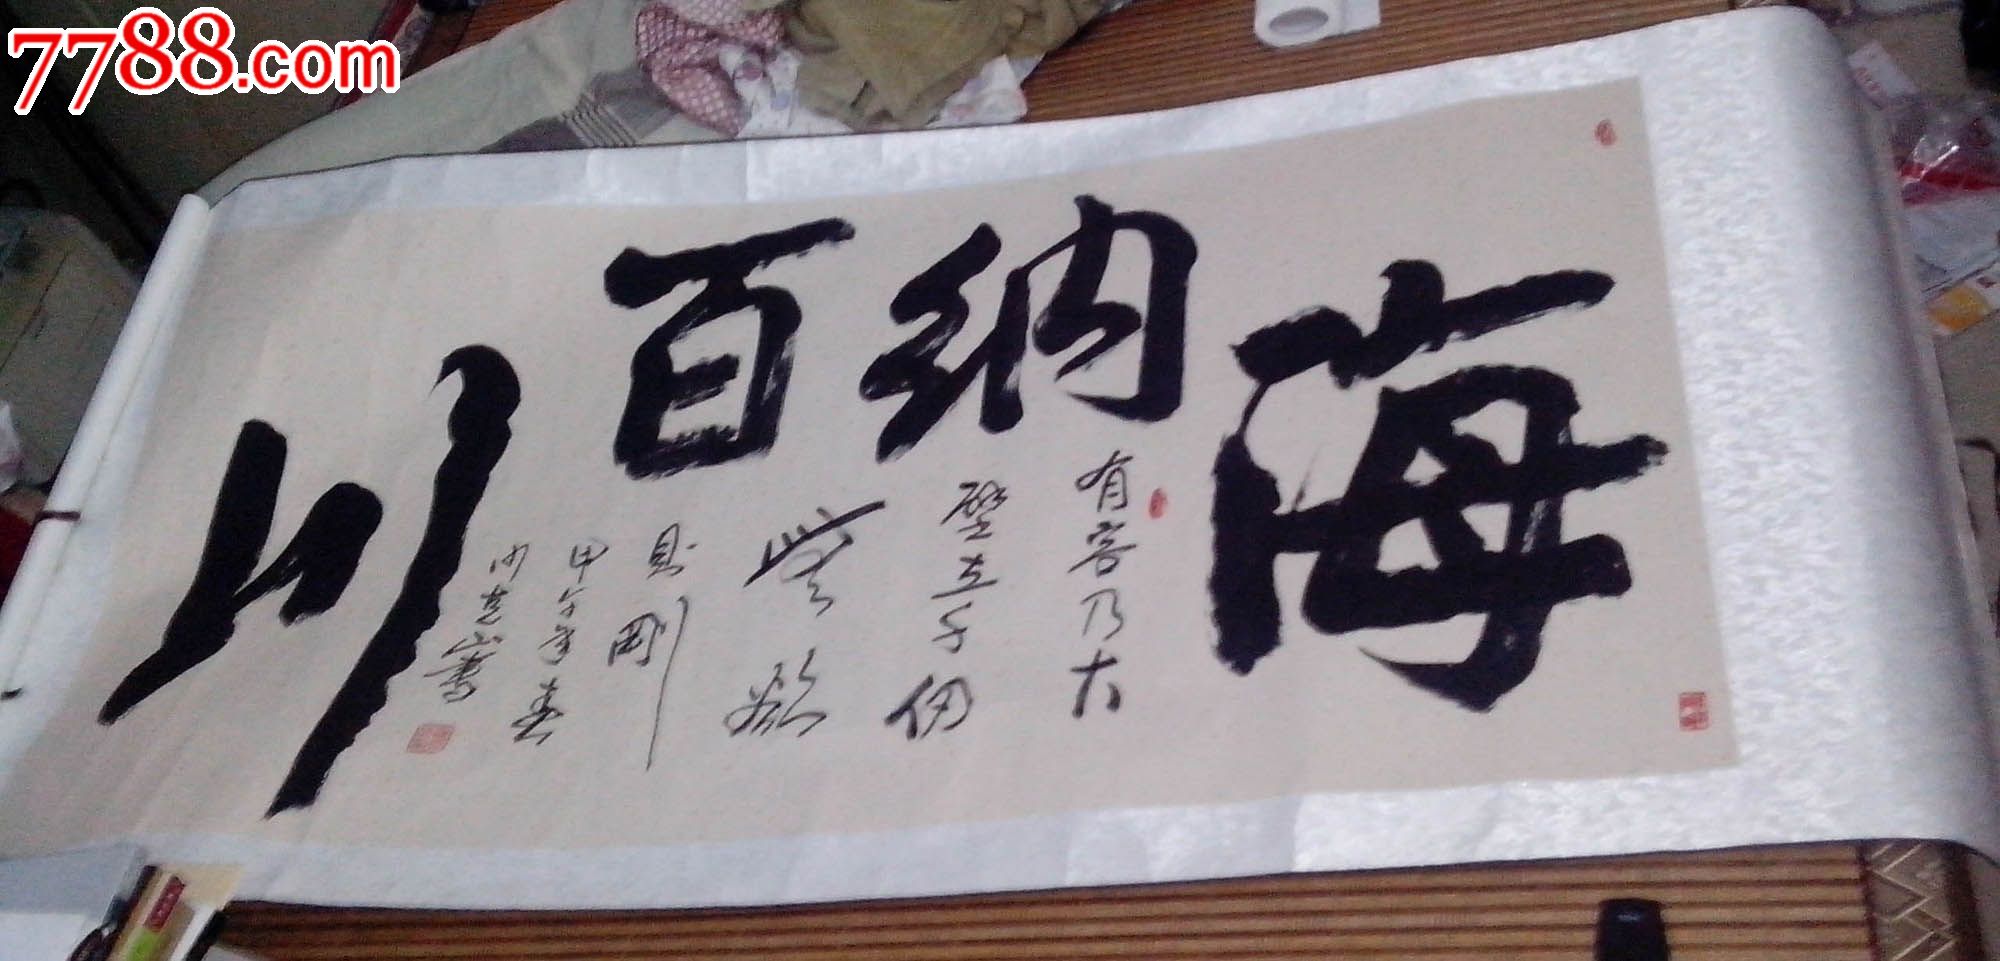 7788.com
海納百川
有容乃大
壁立千仞
無欲
則剛
甲午年春
書